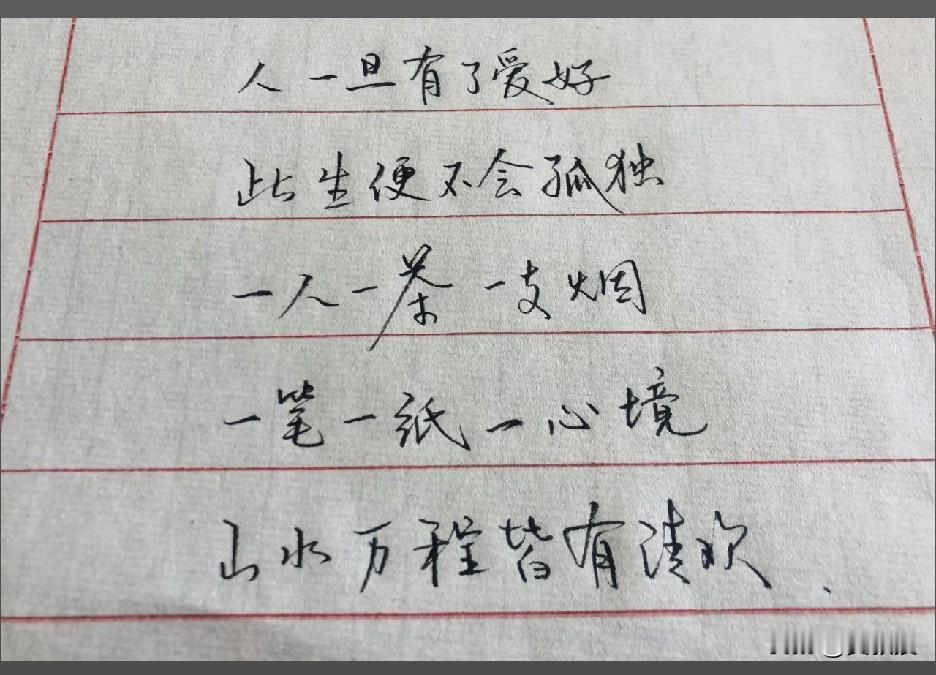 人一旦有了爱好
此生便不会孤独
一人一茶一支烟
一笔一纸一心境
山水万程皆有清欢、